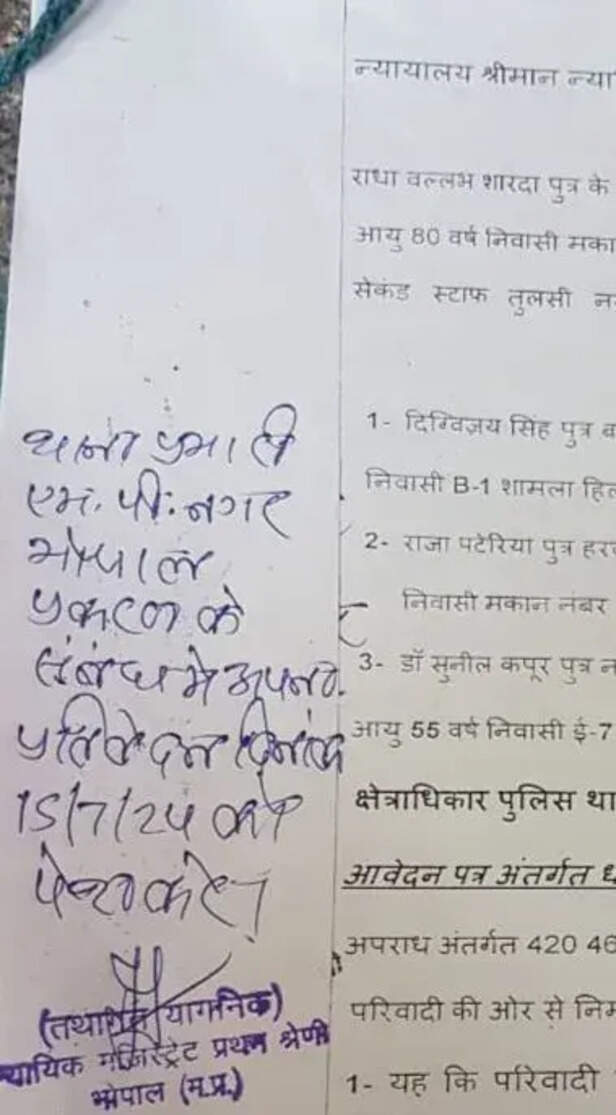 थाना प्रभारी
एम.पी. नगर
भोपाल
प्रकरण के
संबंध मे अपना
प्रतिवेदन दिनांक
15/7/24 को
पेश करे।
(तथागत याग्निक)
न्यायिक मजिस्ट्रेट प्रथम श्रेणी
भोपाल (म.प्र.)
न्यायालय श्रीमान न्या
राधा वल्लभ शारदा पुत्र के
आयु 80 वर्ष निवासी मका
सेकंड स्टाफ तुलसी न
1- दिग्विजय सिंह पुत्र ब
निवासी B-1 शामला हिल
2- राजा पटेरिया पुत्र हर
निवासी मकान नंबर
3- डॉ सुनील कपूर पुत्र न
आयु 55 वर्ष निवासी ई-7
क्षेत्राधिकार पुलिस था
आवेदन पत्र अंतर्गत ध
अपराध अंतर्गत 420 46
परिवादी की ओर से निम
1- यह कि परिवादी